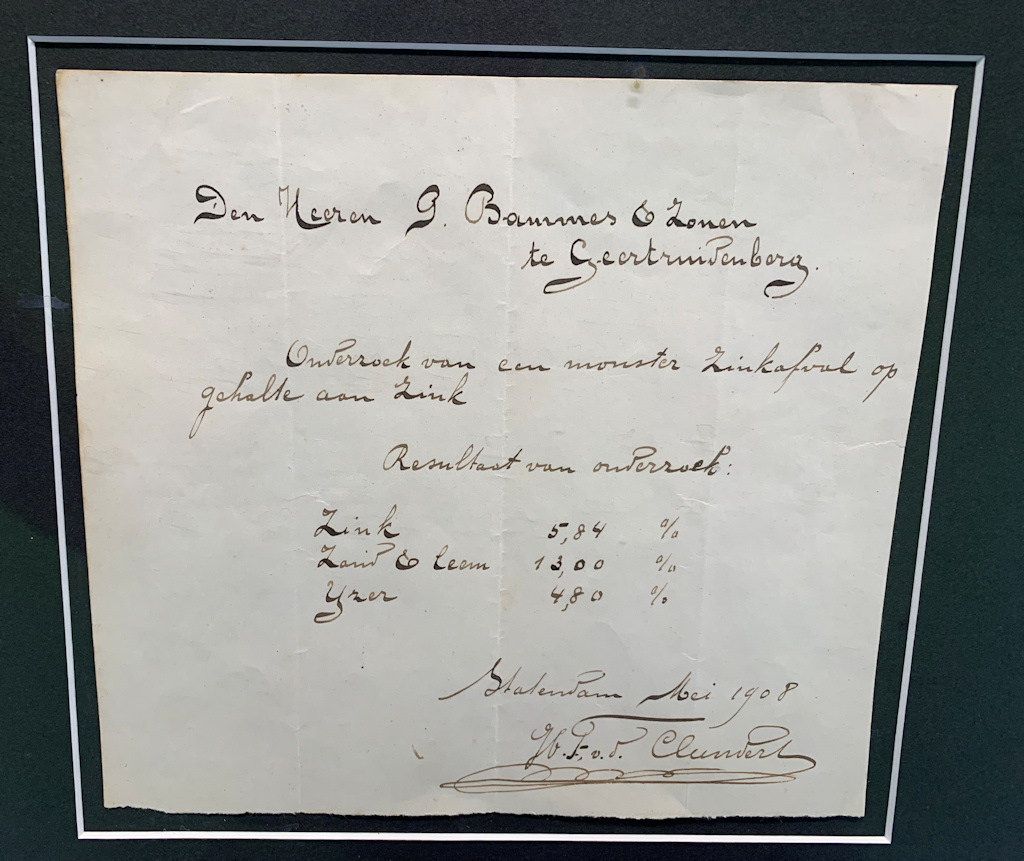 Den Heeren G. Bammes & Zonen
te Geertruidenberg.
Onderzoek van een monster Zinkafval op
gehalte aan Zink
Resultaat van onderzoek:
Zink 5,84 %
Zand & leem 13,00 %
Yzer 4,80 %
Statendam Mei 1908
v.d. Clundert